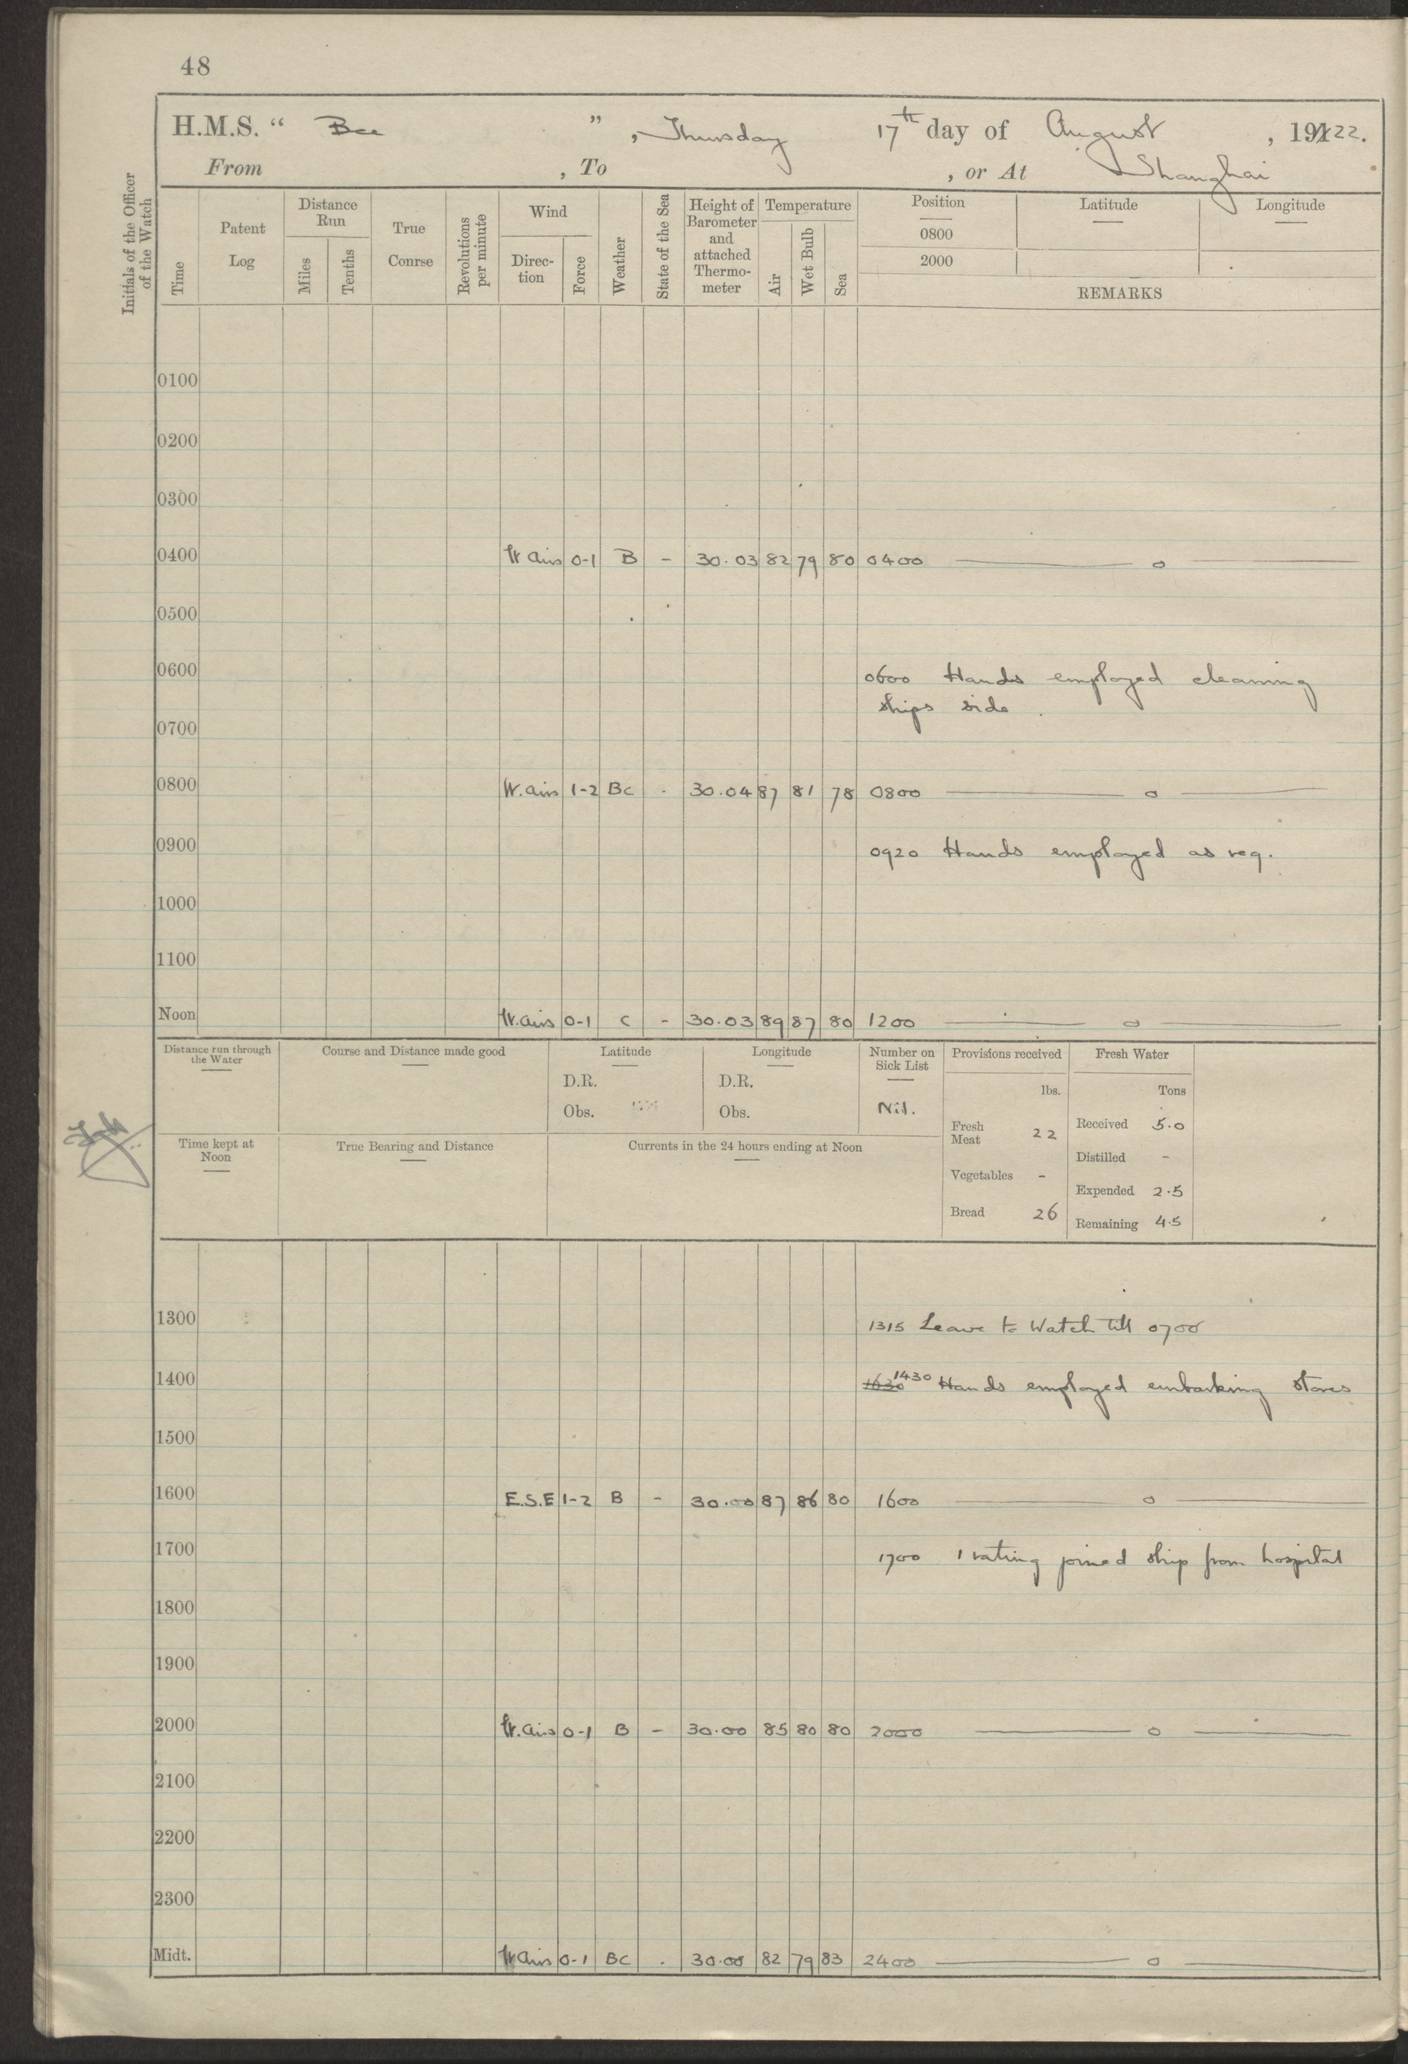 48
H.M.S. “ Bee ” , Thursday 17th day of August , 1922.
From , To , or At Shanghai
Initials of the Officer of the Watch
Time
Patent Log
Distance Run
Miles
Tenths
True Course
Revolutions per minute
Wind
Direc-tion
Force
Weather
State of the Sea
Height of Barometer and attached Thermo-meter
Temperature
Air
Wet Bulb
Sea
Position
0800
2000
Latitude
Longitude
REMARKS
0100
0200
0300
0400 V airs 0-1 B - 30.03 82 79 80 0400 — o —
0500
0600 0600 Hands employed cleaning
ships side.
0700
0800 V. airs 1-2 BC - 30.04 87 81 78 0800 — o —
0900 0920 Hands employed as req.
1000
1100
Noon V. airs 0-1 C - 30.03 89 87 80 1200 — o —
Distance run through the Water
Course and Distance made good
Latitude
D.R.
Obs.
Longitude
D.R.
Obs.
Number on Sick List
Nil.
Provisions received
lbs.
Fresh Meat 22
Vegetables -
Bread 26
Fresh Water
Tons
Received 5.0
Distilled -
Expended 2.5
Remaining 4.5
Time kept at Noon
True Bearing and Distance
Currents in the 24 hours ending at Noon
1300 1315 Leave to Watch till 0700
1400 1630 1430 Hands employed embarking stores
1500
1600 E.S.E 1-2 B - 30.00 87 86 80 1600 — o —
1700 1700 1 rating joined ship from hospital
1800
1900
2000 V. airs 0-1 B - 30.00 85 80 80 2000 — o —
2100
2200
2300
Midt. V airs 0-1 BC . 30.00 82 79 83 2400 — o —